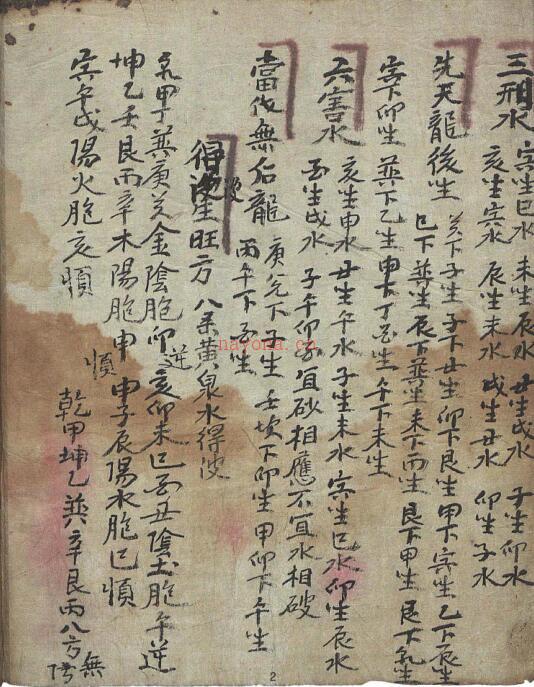 三刑水 寅生巳水 未生辰水 丑生戌水 子生卯水
亥生寅水 辰生未水 戌生丑水 卯生子水
先天龍後生 癸下子生 子下丑生 卯下艮生 甲下寅生 乙下辰生
巳下巽生 辰下巽生 未下丙生 艮下甲生 艮下乾生
寅下卯生 巽下乙生 申下丁生 午下未生
六害水 亥生申水 丑生午水 子生未水 寅生巳水 卯生辰水
酉生戌水 子午卯酉宜砂相應不宜水相破
當代無后龍 庚兌下子生 壬坎下卯生 甲卯下午生
丙午下子生
得 生旺方 八条黃泉水得波
乾甲丁巽庚癸金陰胞卯逆亥卯未巳酉丑陰土胞午逆
坤乙壬艮丙辛木陽胞申順申子辰陽水胞巳順
寅午戌陽火胞亥順
乾甲坤乙巽辛艮丙八方無
nayona.cn
2